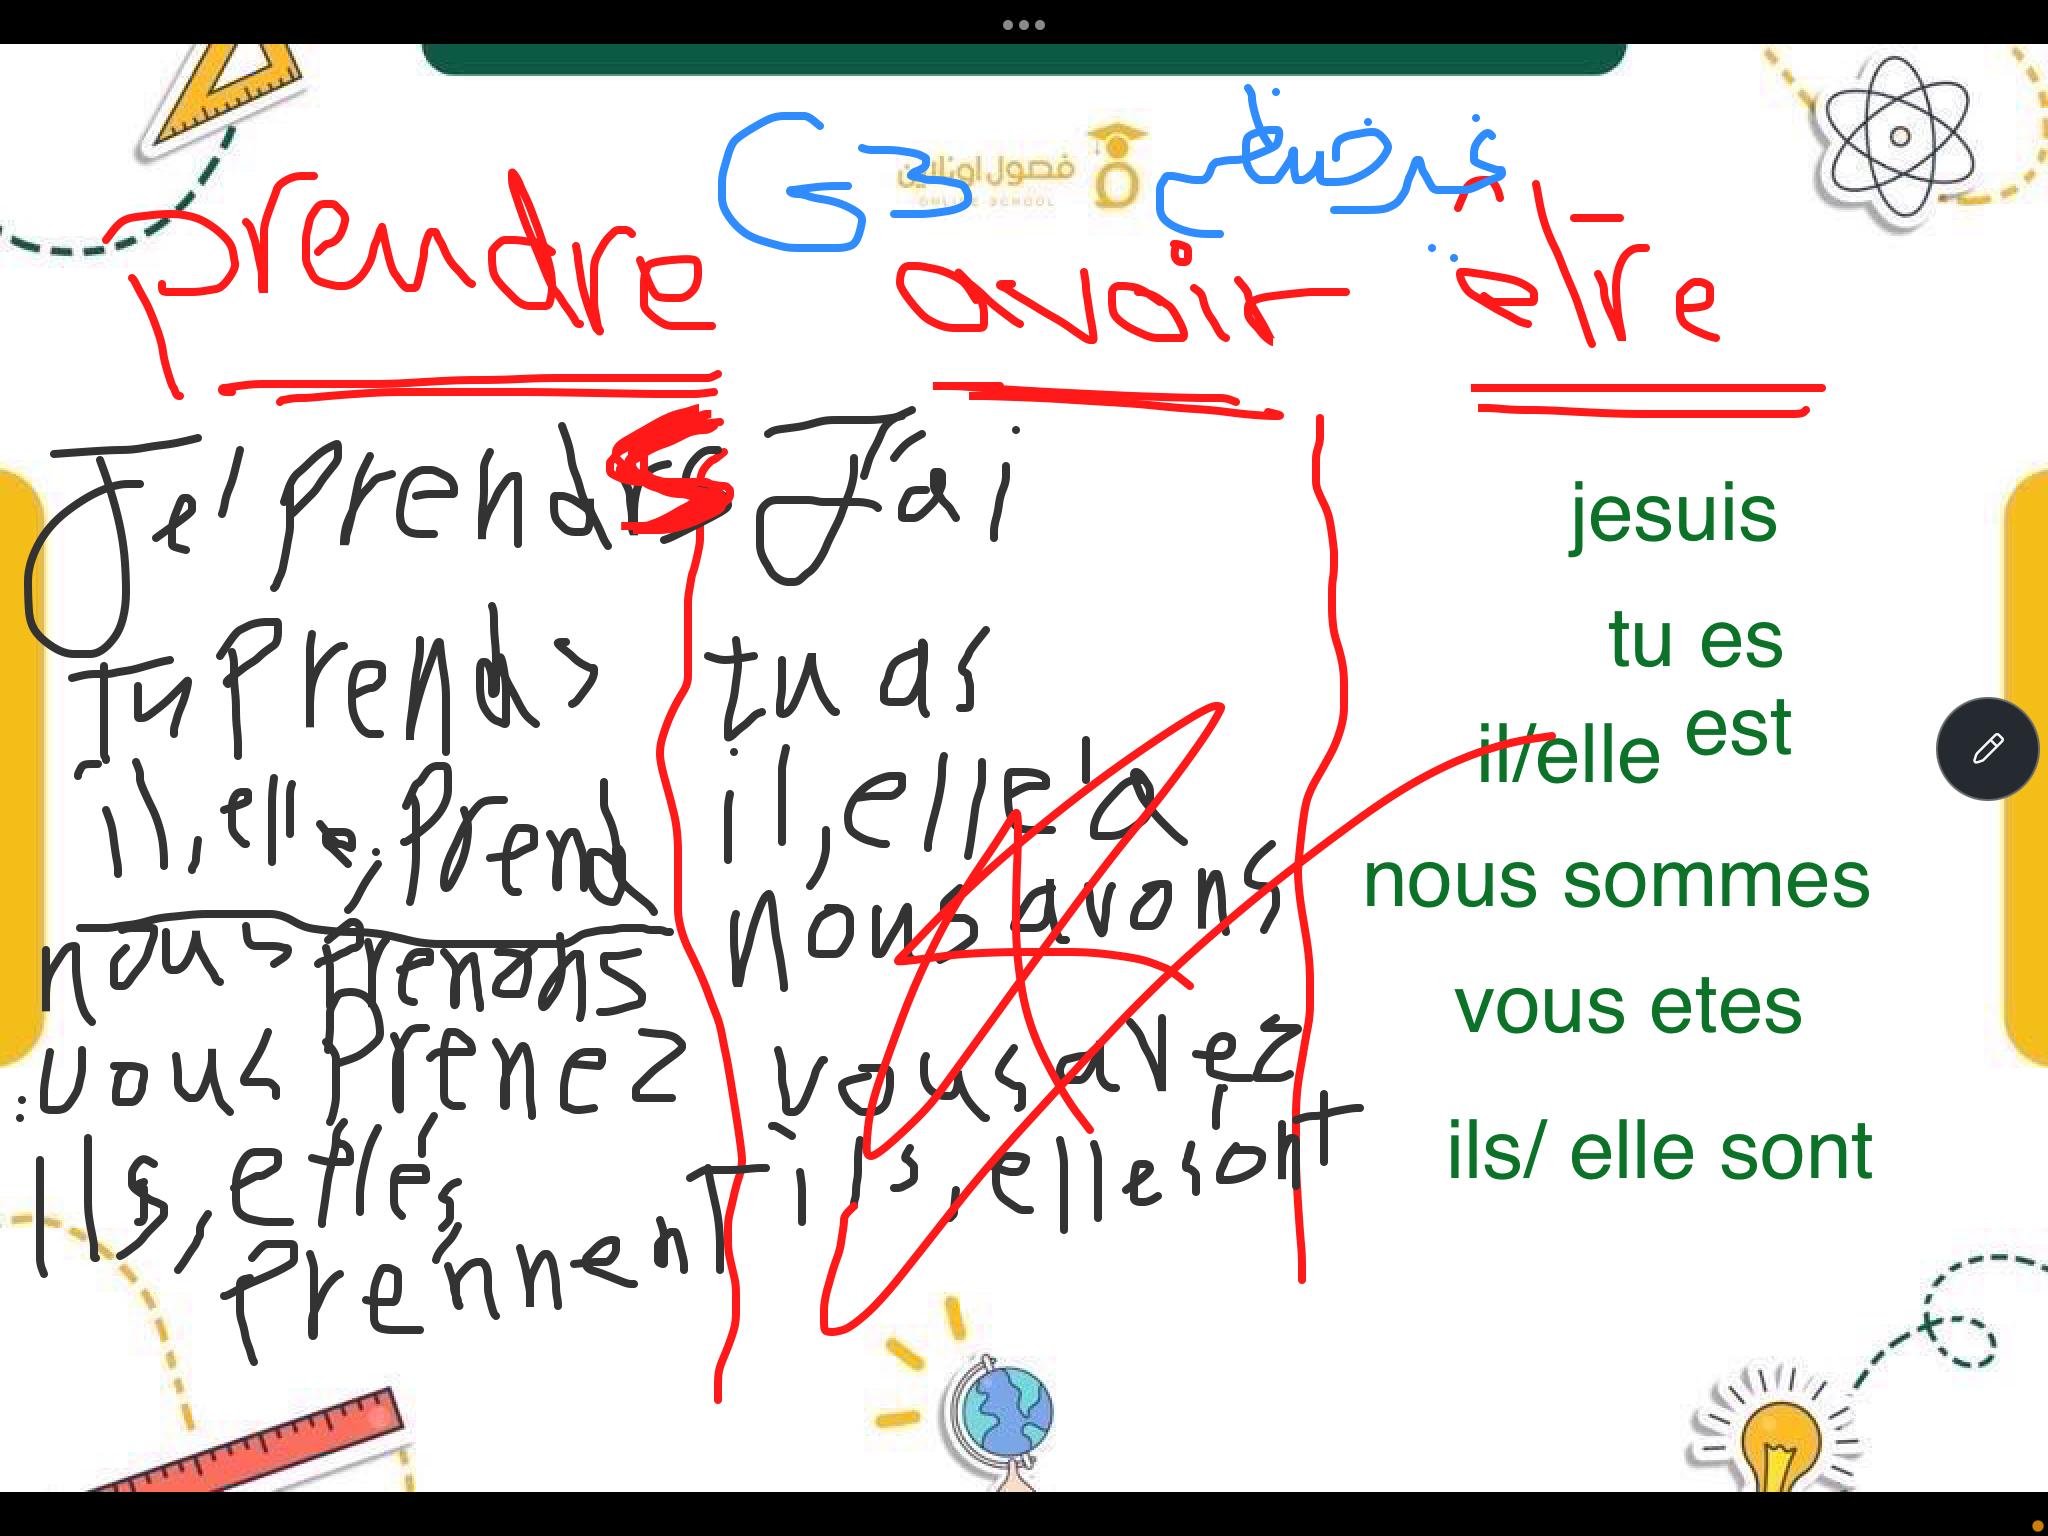 G3
فصول اونلاين
ONLINE SCHOOL
prendre
avoir
être
Je prends
Tu prends
il, elle prend
nous prenons
vous prenez
Ils, elles
prennent
J'ai
tu as
il, elle a
nous avons
vous avez
ils, elles ont
jesuis
tu es
il/elle est
nous sommes
vous etes
ils/ elle sont